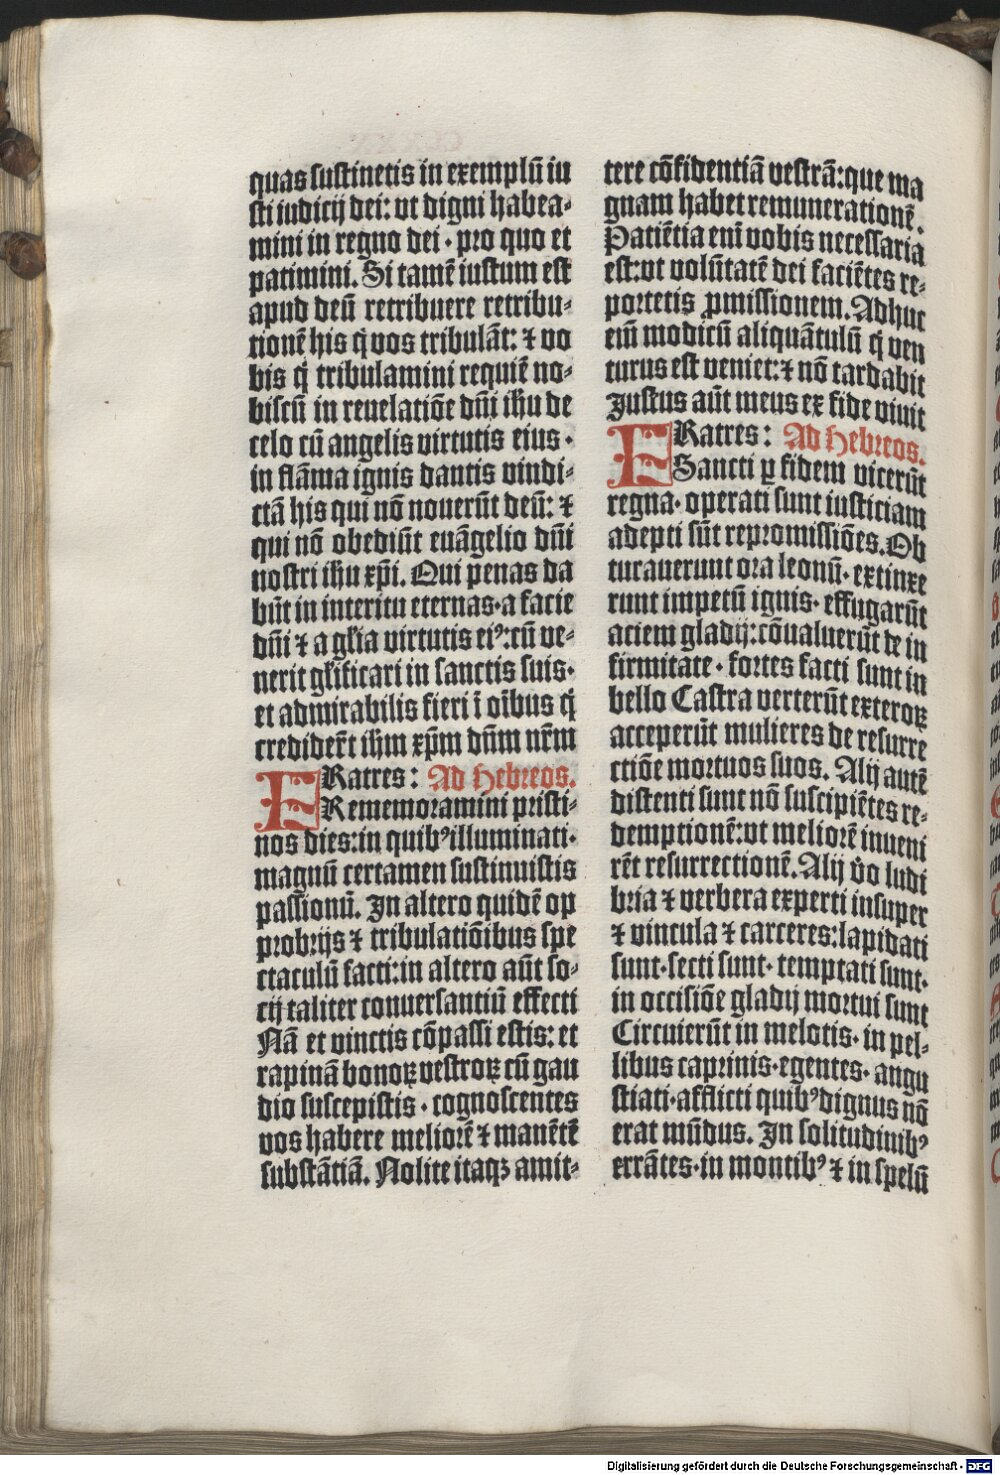 quas sustinetis in exemplū iu
sti iudicij dei: vt digni habea-
mini in regno dei · pro quo et
patimini. Si tamē iustum est
apud deū retribuere retribu-
tionē his q̄ vos tribulāt: ⁊ vo
bis q̄ tribulamini requiē no-
biscū in reuelatiōe dn̄i ih̄u de
celo cū angelis virtutis eius ·
in flāma ignis dantis vindi-
ctā his qui nō nouerūt deū: ⁊
qui nō obediūt euāgelio dn̄i
nostri ih̄u xp̄i. Qui penas da
būt in interitu eternas · a facie
dn̄i ⁊ a gl̄ia virtutis eiꝰ: cū ve-
nerit gl̄ificari in sanctis suis ·
et admirabilis fieri ī oībus q̄
crediderūt ih̄m xp̄m dn̄m nr̄m
FRatres: Ad Hebreos.
Rememoramini pristi-
nos dies: in quibꝰ illuminati ·
magnū certamen sustinuistis
passionū. In altero quidē op
probrijs ⁊ tribulatiōibus spe
ctaculū facti: in altero aūt so-
cij taliter conuersantiū effecti
Nā et vinctis cōpassi estis: et
rapinā bonoꝝ vestroꝝ cū gau
dio suscepistis · cognoscentes
vos habere meliorē ⁊ manētē
substātiā. Nolite itaqꝫ amit-
tere cōfidentiā vestrā: que ma
gnam habet remunerationē.
Patiētia enī vobis necessaria
est: vt volūtatē dei faciētes re-
portetis ꝓmissionem. Adhuc
eiū modicū aliquātulū q̄ ven
turus est veniet: ⁊ nō tardabit
Justus aūt meus ex fide viuit
FRatres: Ad Hebreos.
Sancti ꝑ fidem vicerūt
regna · operati sunt iusticiam
adepti sūt repromissiōes. Ob
turauerunt ora leonū · extinxe
runt impetū ignis · effugarūt
aciem gladij: cōualuerūt de in
firmitate · fortes facti sunt in
bello Castra verterūt exteroꝝ
acceperūt mulieres de resurre
ctiōe mortuos suos. Alij autē
distenti sunt nō suscipiētes re-
demptionē: vt meliorē inueni
rēt resurrectionē. Alij v̊o ludi
bria ⁊ verbera experti insuper
⁊ vincula ⁊ carceres: lapidati
sunt · secti sunt · temptati sunt ·
in occisiōe gladij mortui sunt
Circuierūt in melotis · in pel-
libus caprinis · egentes · angu
stiati · afflicti quibꝰ dignus nō
erat mūdus. In solitudinibꝰ
errātes · in montibꝰ ⁊ in spelū
Digitalisierung gefördert durch die Deutsche Forschungsgemeinschaft - DFG